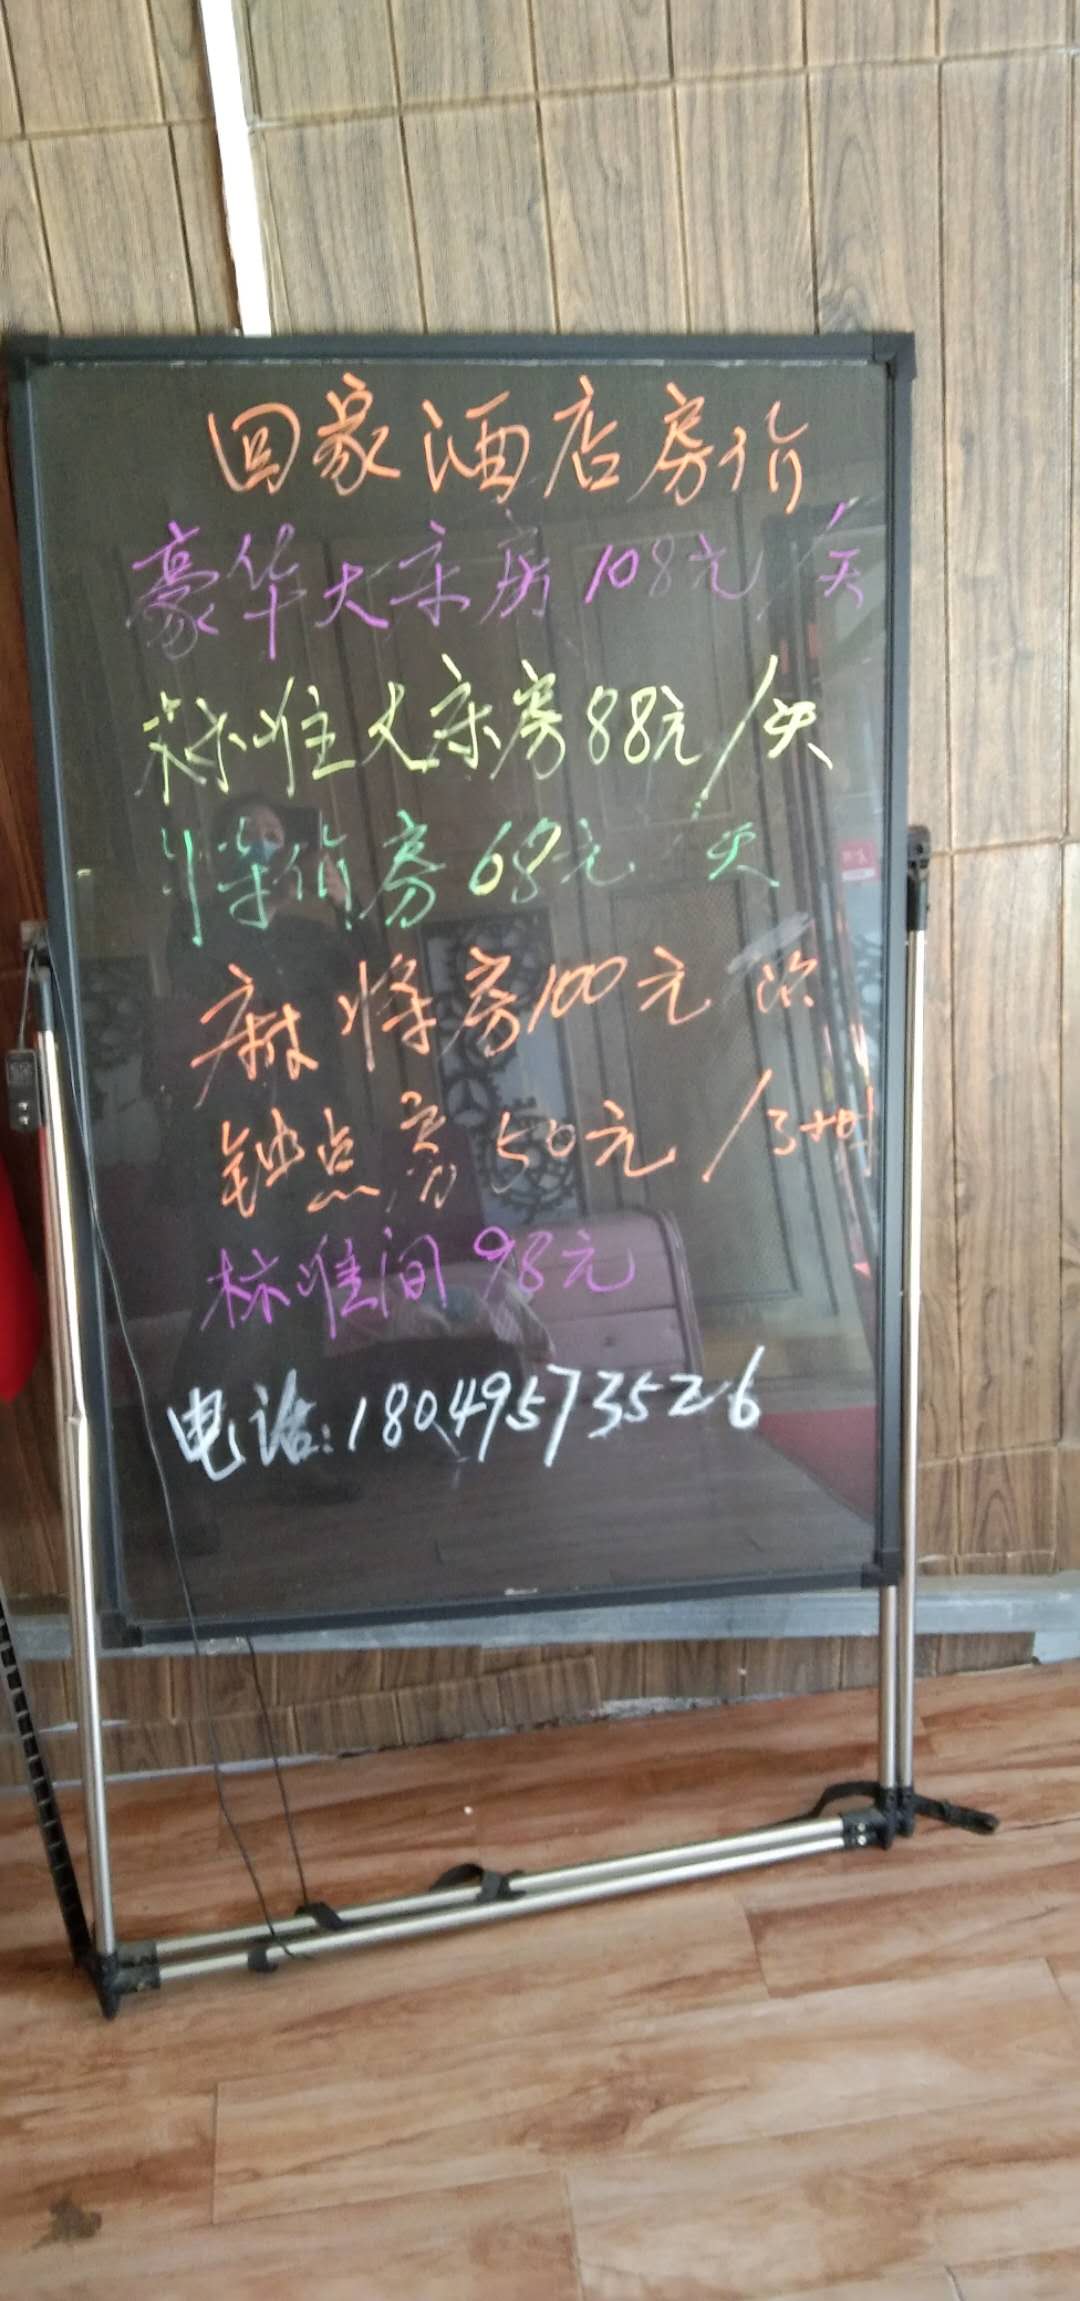 回家酒店房价
豪华大床房108元/天
标准大床房88元/天
特价房68元 天
麻将房100元
钟点房50元/3小时
标准间98元
电话:18049573526